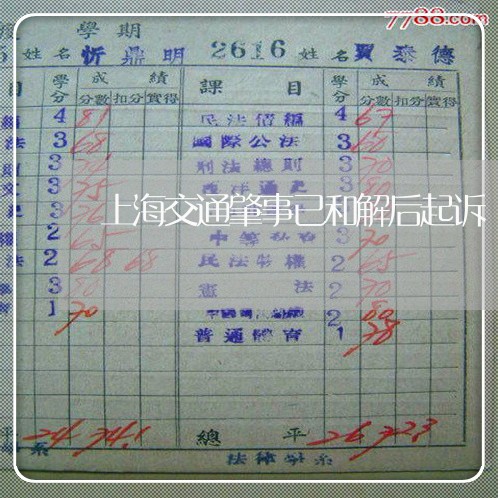 7788.com
學期
5 姓名 忻鼎明 2616 姓名 賈泰德
目 學分 成績 課目 學分 成績
分數 扣分 實得 分數 扣分 實得
4 81 民法債編 4 67
法 3 68 國際公法 3 60
3 刑法總則 3 70
3 75 西洋通史 3 80
上海交通肇事已和解后起诉
2 65 3 70
法 2 68 68 民法物權 2 65
3 80 憲法 2 70
1 70 2 80
普通體育 1 78
平 24 74.1 總平 26 72.3
系 法律學系